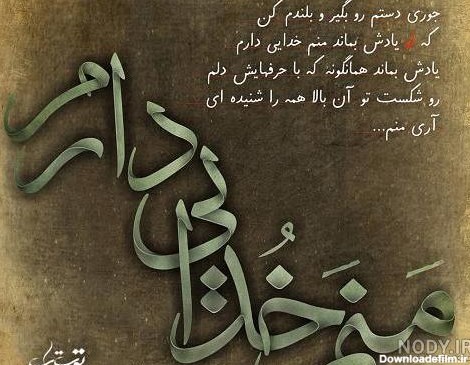 جوری دستم رو بگیر و بلندم کن
که او یادش بماند منم خدایی دارم
یادش بماند همانگونه که با حرفهایش دلم
رو شکست تو آن بالا همه را شنیده ای
آری منم...
منم خدایی دارم
NODY.IR
Downloadefilm.ir